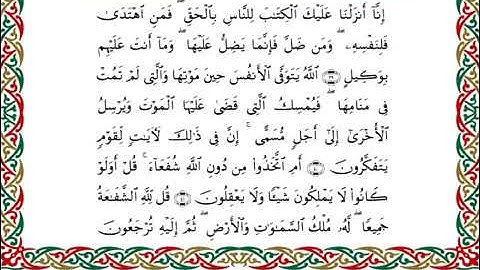 إِنَّآ أَنزَلْنَا عَلَيْكَ ٱلْكِتَٰبَ لِلنَّاسِ بِٱلْحَقِّ ۖ فَمَنِ ٱهْتَدَىٰ
فَلِنَفْسِهِۦ ۖ وَمَن ضَلَّ فَإِنَّمَا يَضِلُّ عَلَيْهَا ۖ وَمَآ أَنتَ عَلَيْهِم
بِوَكِيلٍ ۝ ٱللَّهُ يَتَوَفَّى ٱلْأَنفُسَ حِينَ مَوْتِهَا وَٱلَّتِى لَمْ تَمُتْ
فِى مَنَامِهَا ۖ فَيُمْسِكُ ٱلَّتِى قَضَىٰ عَلَيْهَا ٱلْمَوْتَ وَيُرْسِلُ
ٱلْأُخْرَىٰٓ إِلَىٰٓ أَجَلٍ مُّسَمًّى ۚ إِنَّ فِى ذَٰلِكَ لَءَايَٰتٍ لِّقَوْمٍ
يَتَفَكَّرُونَ ۝ أَمِ ٱتَّخَذُوا۟ مِن دُونِ ٱللَّهِ شُفَعَآءَ ۚ قُلْ أَوَلَوْ
كَانُوا۟ لَا يَمْلِكُونَ شَيْـًٔا وَلَا يَعْقِلُونَ ۝ قُل لِّلَّهِ ٱلشَّفَٰعَةُ
جَمِيعًا ۖ لَّهُۥ مُلْكُ ٱلسَّمَٰوَٰتِ وَٱلْأَرْضِ ۖ ثُمَّ إِلَيْهِ تُرْجَعُونَ